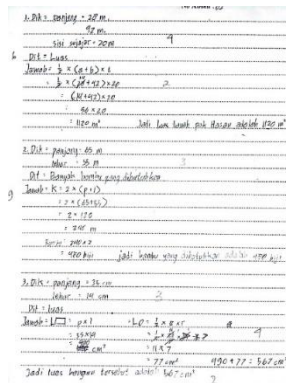 1. Dik = panjang = 28 m.
92 m.
sisi sejajar = 20 m
4
6
Dit = Luas
Jawab = 1/2 × (a+b) × t
= 1/2 × ( +92) × 20
2
= ( +92) × 20
56 × 20
= 1120 m²
Jadi luas tanah pak Hasan adalah 1120 m²
2. Dik = panjang = 65 m
lebar = 35 m
3
Dit = Banyak bambu yang dibutuhkan
9
Jawab = K = 2 × (p+l)
= 2 ×
= 2 ×
= m
= 480 biji
jadi bambu yang dibutuhkan adalah 480 biji
3. Dik = panjang = 35 cm
lebar = 14 cm
2
Dit = luas
Jawab = L = p × l
L = 1/2 ×
= 35 × 14
4
= cm²
= 11 × 7
= 77 cm²
490 + 77 = 567 cm²
Jadi luas bangun tersebut adalah 567 cm²